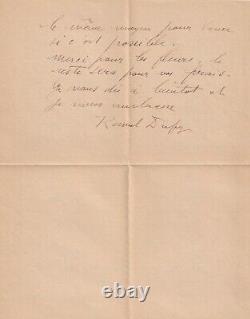 le même moyen pour vous
si c'est possible.
merci pour les fleurs, le
reste sera pour vos
vous dis à bientôt et
Je vous
Raoul Dufy